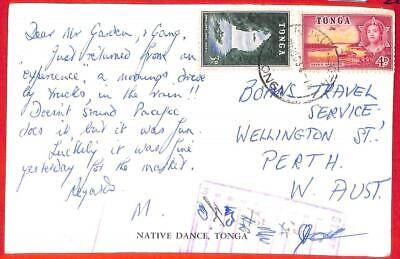 Dear Mr Garden, & Gang.
Just returned from an
experience, a mornings drive
by trucks, in the rain!!
Doesn't sound Pacific
does it, but it was fun.
Luckily it was fine
yesterday for the market.
Regards.
M.
TONGA
TONGA
4d
BOANS TRAVEL
SERVICE.
WELLINGTON ST.
PERTH.
W. AUST.
NATIVE DANCE, TONGA